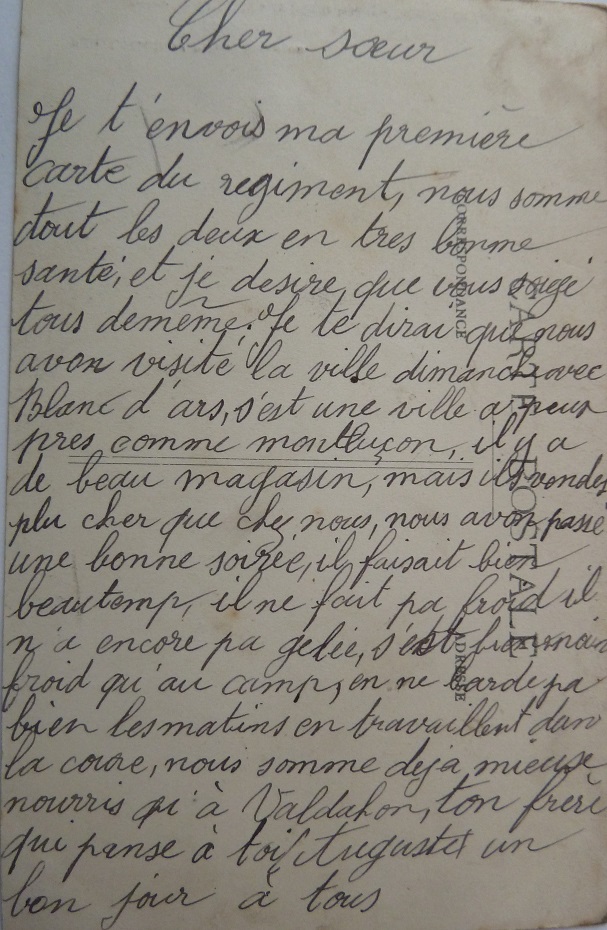 Cher sœur
Je t'envois ma première
carte du regiment, nous somme
tout les deux en tres bonne
santé, et je desire que vous soigé
tous demême. Je te dirai que nous
avon visité la ville dimanche avec
Blanc d'ars, s'est une ville a peux
pres comme montluçon, il y a
de beau magasin, mais ils vondes
plu cher que chez nous, nous avon passé
une bonne soirée, il faisait bien
beautemp, il ne fait pa froid il
n'a encore pa gelée, s'est bien moin
froid qu'au camp, en ne garde pa
bien les matins en travaillent dan
la coure, nous somme deja mieuse
nourris qu'à Valdahon, ton frère
qui panse à toi Auguste un
bon jour à tous
CARTE POSTALE
CORRESPONDANCE
ADRESSE